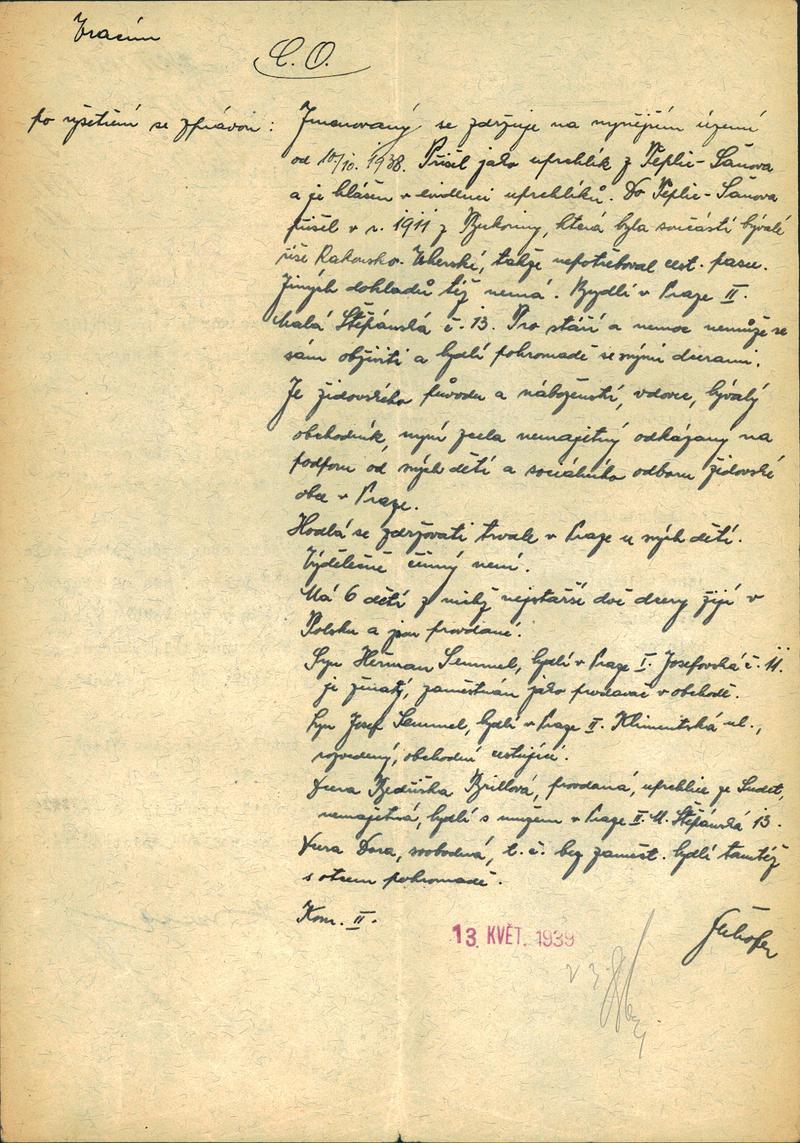 Vracím
C. O.
po vyšetření se zprávou: Jmenovaný se zdržuje na nynějším území
od 10/10. 1938. Přišel jako uprchlík z Teplic-Šanova
a je hlášen v evidenci uprchlíků. Do Teplic-Šanova
přišel v r. 1911 z Bukoviny, která byla součástí bývalé
říše Rakousko-Uherské, takže nepotřeboval cest. pasu.
Jiných dokladů též nemá. Bydlí v Praze II.
Malá Štěpánská č. 13. Pro stáří a nemoc nemůže se
sám obživiti a bydlí pohromadě se svými dcerami.
Je židovského původu a náboženství, vdovec, bývalý
obchodník, nyní zcela nemajetný odkázaný na
podporu od svých dětí a sociálního odboru židovské
obce v Praze.
Hodlá se zdržovati trvale v Praze u svých dětí.
Výdělečně činný není.
Má 6 dětí z nichž nejstarší dvě dcery žijí v
Polsku a jsou provdané.
Syn Heřman Semmel, bydlí v Praze I. Josefovská č. 11.
je ženatý, zaměstnán jako prodavač v obchodě.
Syn Josef Semmel, bydlí v Praze II. Klimentská ul.,
rozvedený, obchodní cestující.
Dcera Beduška Brillová, provdaná, uprchlice ze Sudet,
nemajetná, bydlí s mužem v Praze II. M. Štěpánská 13.
Dcera Dora, svobodná, t. č. bez zaměst. bydlí tamtéž
s otcem pohromadě.
Kom. II.
13. KVĚT. 1939